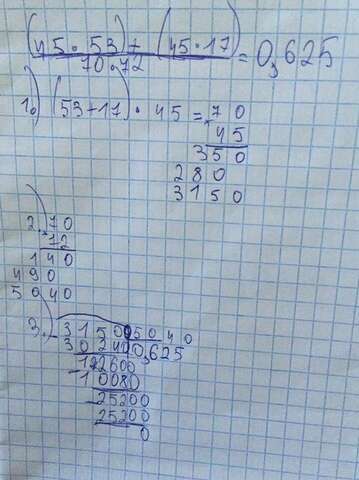 (45·53)+(45·17)
70·72 = 0,625
1.) (53-17)·45= 70
×45
350
280
3150
2. ×70
72
140
490
5040
3. -3150 5040
30240 0,625
-12600
10080
-25200
25200
0